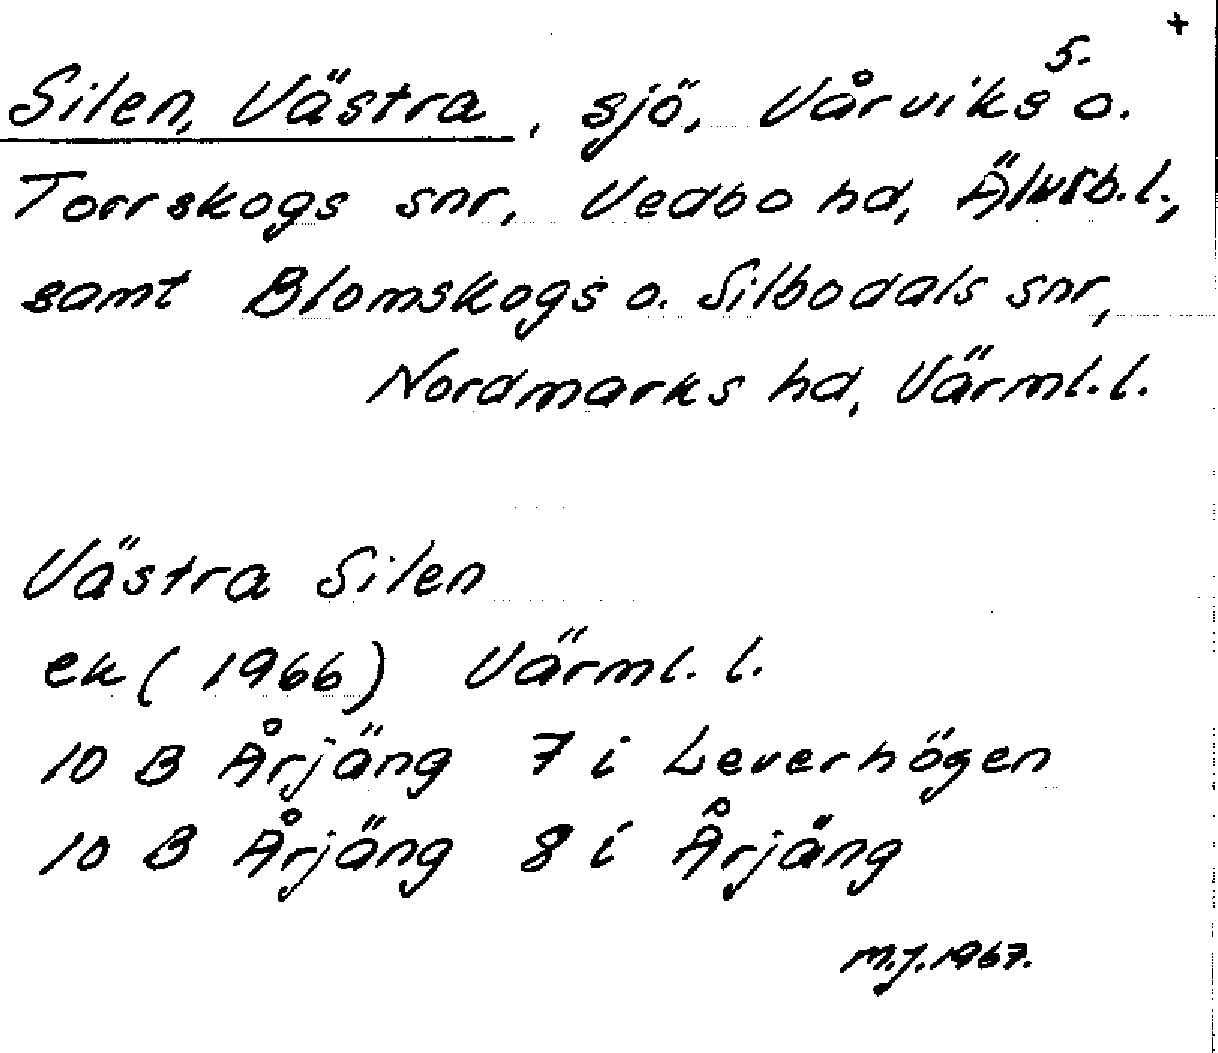 5. +
Silen, Västra, sjö, Vårviks o.
Torrskogs snr, Vedbo hd, Älvsb.l.,
samt Blomskogs o. Silbodals snr,
Nordmarks hd, Värml.l.
Västra Silen
ek (1966) Värml. l.
10 B Årjäng 7 i Leverhögen
10 B Årjäng 8 i Årjäng
M.J. 1967.